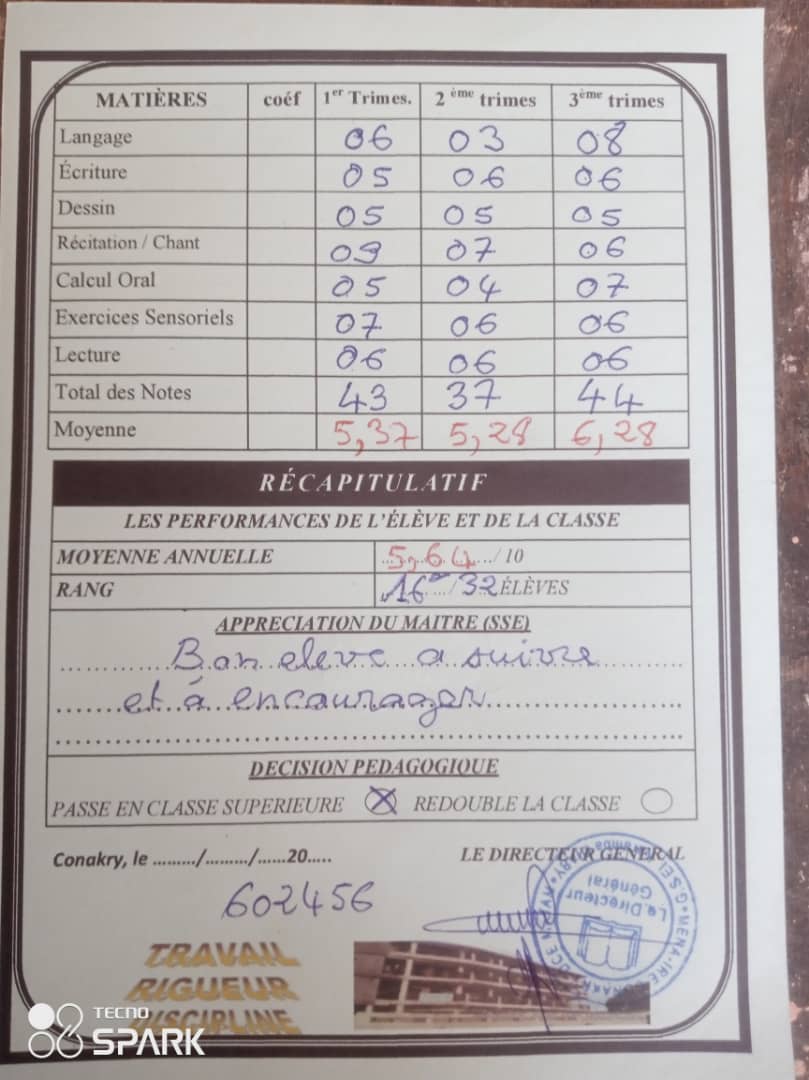 MATIÈRES coéf 1er Trimes. 2 ème trimes 3ème trimes
Langage 06 03 08
Écriture 05 06 06
Dessin 05 05 05
Récitation / Chant 09 07 06
Calcul Oral 05 04 07
Exercices Sensoriels 07 06 06
Lecture 06 06 06
Total des Notes 43 37 44
Moyenne 5,37 5,28 6,28
RÉCAPITULATIF
LES PERFORMANCES DE L'ÉLÈVE ET DE LA CLASSE
MOYENNE ANNUELLE 5,64 / 10
RANG 16e / 32 ÉLÈVES
APPRECIATION DU MAITRE (SSE)
Bon eleve a suivre
et à encourager
DECISION PEDAGOGIQUE
PASSE EN CLASSE SUPERIEURE X REDOUBLE LA CLASSE
Conakry, le ........./........./......20.....
LE DIRECTEUR GENERAL
602456
Le Directeur
Général
TRAVAIL
RIGUEUR
DISCIPLINE
TECNO
SPARK